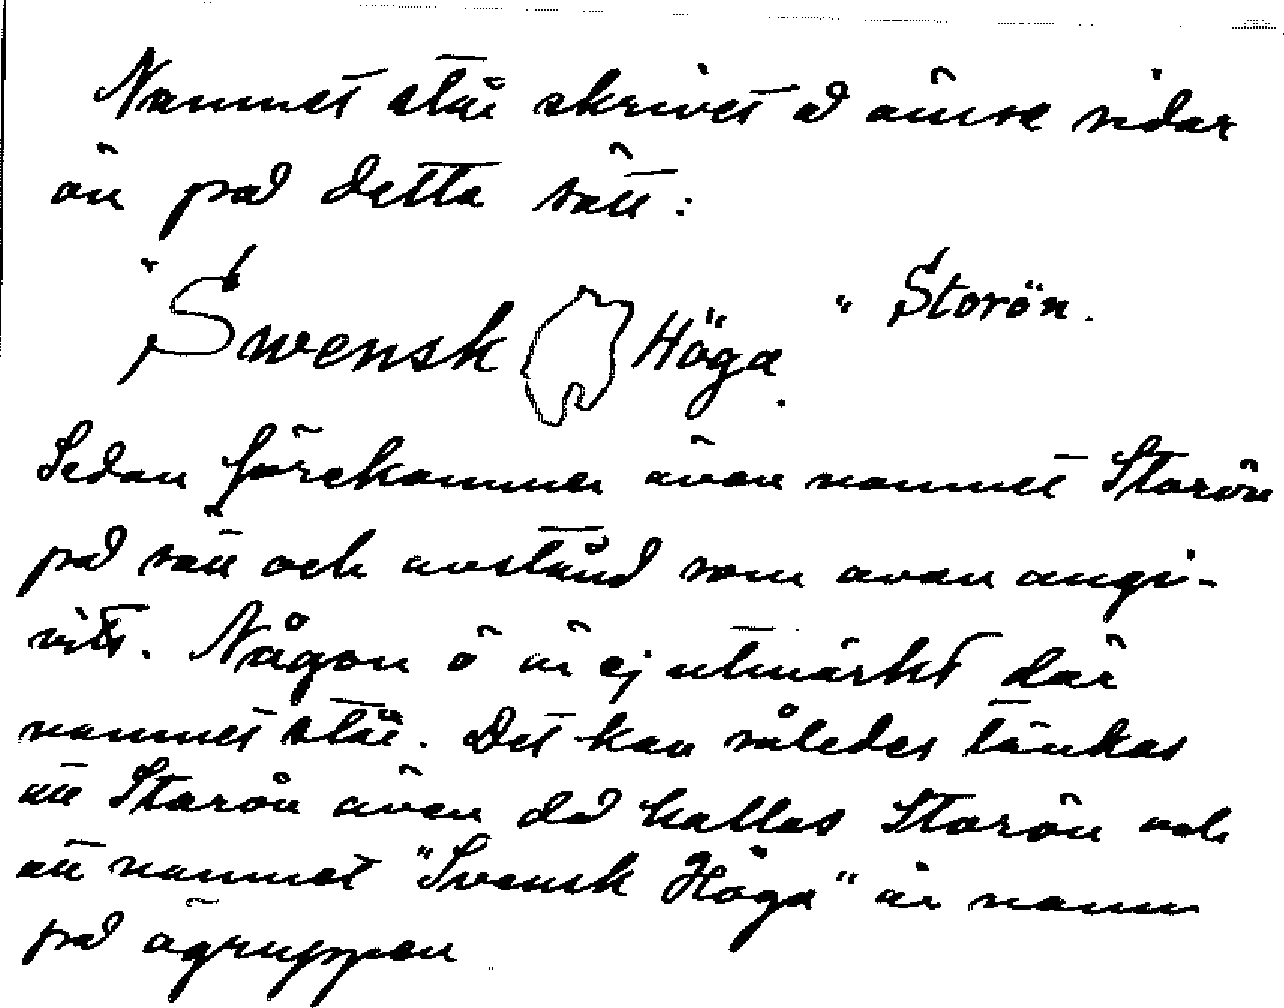 Namnet står skrivet å ömse sidor
ön på detta sätt:
"Swensk Höga. " Storön.
Sedan förekommer även namnet Storön
på sätt och avstånd som ovan angi-
vits. Någon ö är ej utmärkt där
namnet står. Det kan således tänkas
att Storön även då kallas Storön och
att namnet "Svensk Höga" är namn
på ögruppen